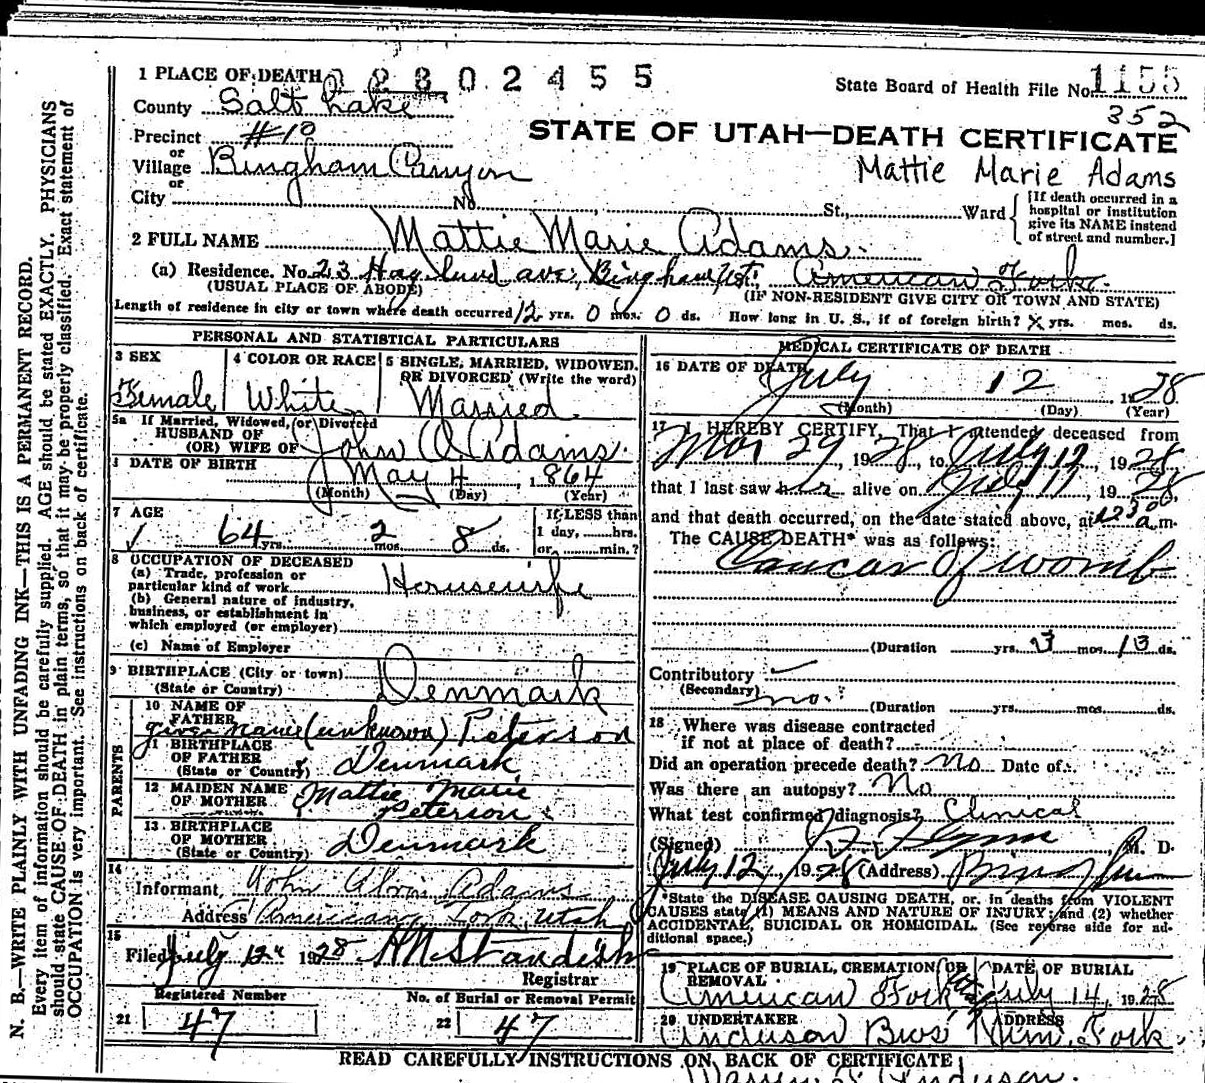 1 PLACE OF DEATH 2802455
State Board of Health File No. 1155
County Salt Lake
352
Precinct #10
STATE OF UTAH—DEATH CERTIFICATE
or
Village Bingham Canyon
Mattie Marie Adams
or
City No. St., Ward
[If death occurred in a hospital or institution give its NAME instead of street and number.]
2 FULL NAME Mattie Marie Adams.
(a) Residence. No. 23 Ave., Bingham American Fork.
(USUAL PLACE OF ABODE) (IF NON-RESIDENT GIVE CITY OR TOWN AND STATE)
Length of residence in city or town where death occurred 12 yrs. 0 mos. 0 ds. How long in U. S., if of foreign birth? X yrs. mos. ds.
PERSONAL AND STATISTICAL PARTICULARS
3 SEX
Female
4 COLOR OR RACE
White
5 SINGLE, MARRIED, WIDOWED, OR DIVORCED (Write the word)
Married.
5a If Married, Widowed, or Divorced
HUSBAND OF
(OR) WIFE OF John A Adams.
DATE OF BIRTH
May 4, 1864
(Month) (Day) (Year)
7 AGE
64 yrs. 2 mos. 8 ds.
If LESS than
1 day, hrs.
or min.?
8 OCCUPATION OF DECEASED
(a) Trade, profession or
particular kind of work Housewife
(b) General nature of industry,
business, or establishment in
which employed (or employer)
(c) Name of Employer
9 BIRTHPLACE (City or town)
(State or Country) Denmark
PARENTS
10 NAME OF
FATHER
given name (unknown) Peterson
11 BIRTHPLACE
OF FATHER
(State or Country) Denmark
12 MAIDEN NAME
OF MOTHER Mattie Marie
Peterson
13 BIRTHPLACE
OF MOTHER
(State or Country) Denmark
14
Informant John Alvin Adams
Address American Fork Utah
15
Filed July 12, 1928 HN Standish
Registrar
Registered Number
21 47
No. of Burial or Removal Permit
22 47
MEDICAL CERTIFICATE OF DEATH
16 DATE OF DEATH
July 12 1928
(Month) (Day) (Year)
17 I HEREBY CERTIFY, That I attended deceased from
Mar 29, 1928, to July 12, 1928
that I last saw her alive on July 11, 1928,
and that death occurred, on the date stated above, at 1230 a m.
The CAUSE DEATH* was as follows:
Cancer of womb
(Duration yrs. 3 mos. 13 ds.
Contributory
(Secondary) no.
(Duration yrs. mos. ds.
18 Where was disease contracted
if not at place of death?
Did an operation precede death? No Date of
Was there an autopsy? No
What test confirmed diagnosis? Clinical
(Signed) Flynn M. D.
July 12, 1928 (Address)
*State the DISEASE CAUSING DEATH, or, in deaths from VIOLENT
CAUSES state (1) MEANS AND NATURE OF INJURY; and (2) whether
ACCIDENTAL, SUICIDAL OR HOMICIDAL. (See reverse side for additional space.)
19 PLACE OF BURIAL, CREMATION OR
REMOVAL
American Fork Utah
DATE OF BURIAL
July 14, 1928
20 UNDERTAKER
Anderson Bros
ADDRESS
Am. Fork.
READ CAREFULLY INSTRUCTIONS ON BACK OF CERTIFICATE
Anderson.
N. B.—WRITE PLAINLY WITH UNFADING INK—THIS IS A PERMANENT RECORD.
Every item of information should be carefully supplied. AGE should be stated EXACTLY. PHYSICIANS
should state CAUSE OF DEATH in plain terms, so that it may be properly classified. Exact statement of
OCCUPATION is very important. See instructions on back of certificate.